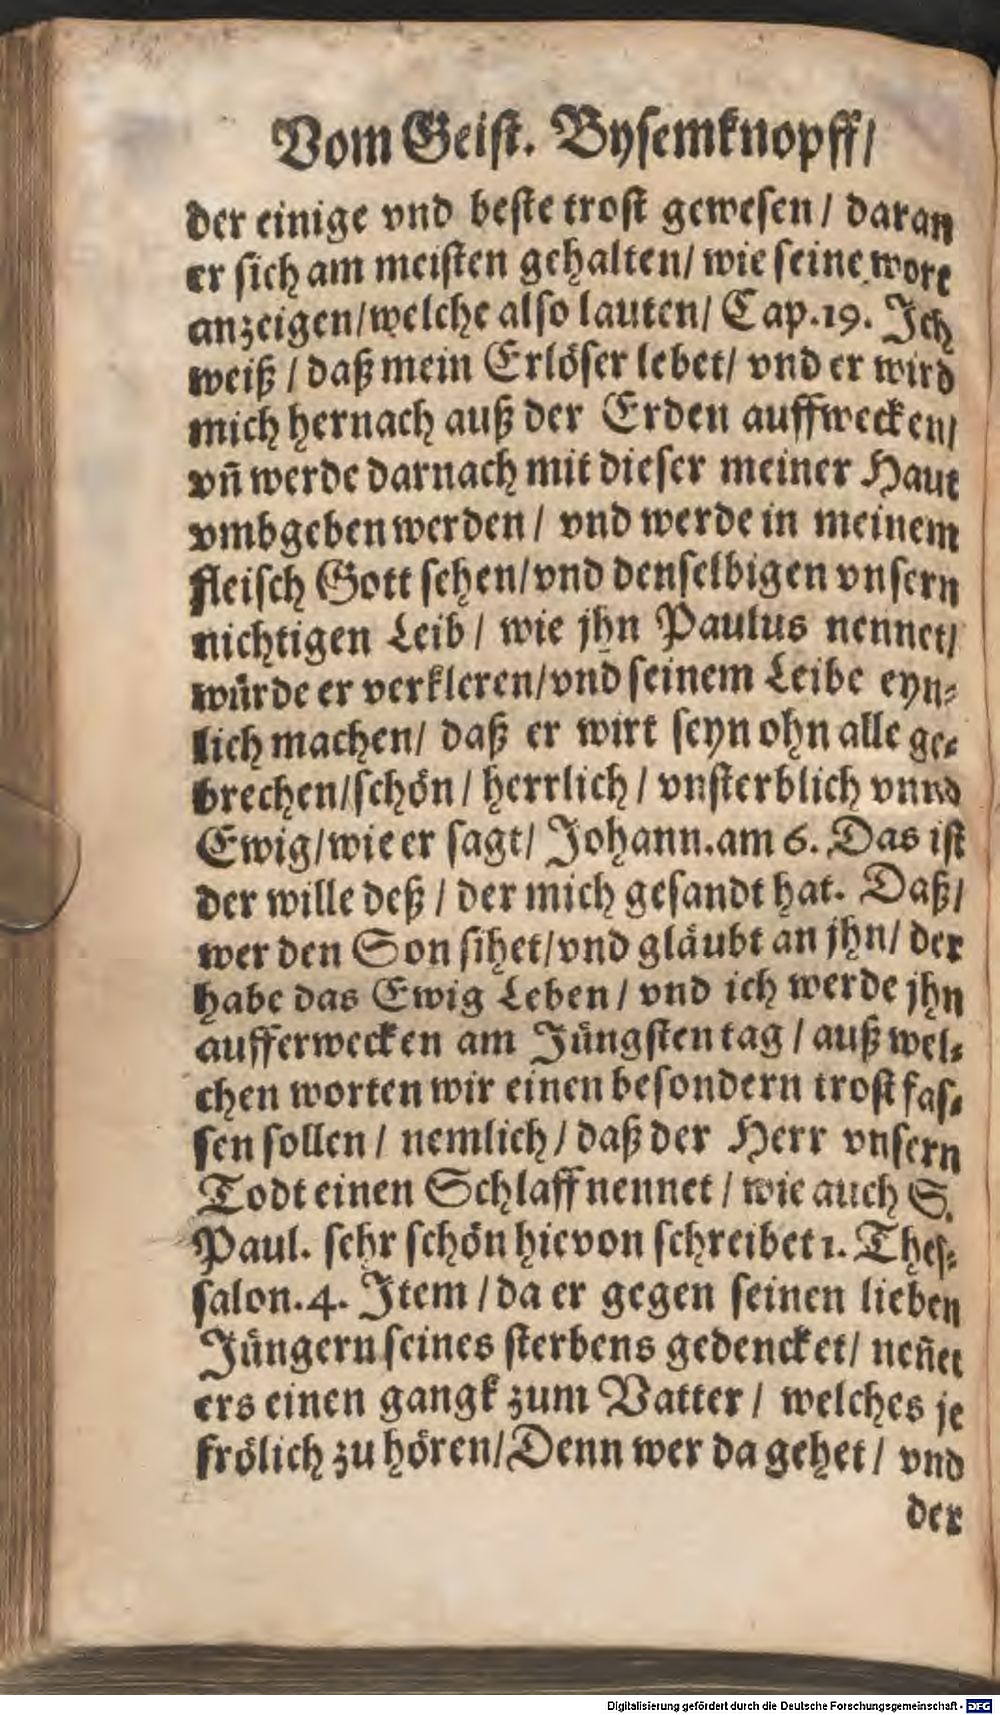 Vom Geiſt. Byſemknopff/
der einige vnd beſte troſt geweſen / daran
er ſich am meiſten gehalten/ wie ſeine wort
anzeigen/welche alſo lauten/ Cap.19. Jch
weiß / daß mein Erlöſer lebet/ vnd er wird
mich hernach auß der Erden auffwecken/
vn̄ werde darnach mit dieſer meiner Haut
vmbgeben werden / vnd werde in meinem
fleiſch Gott ſehen/vnd denſelbigen vnſern
nichtigen Leib / wie jhn Paulus nennet/
würde er verkleren/vnd ſeinem Leibe eyn⸗
lich machen/ daß er wirt ſeyn ohn alle ge⸗
brechen/ſchön / herrlich / vnſterblich vnnd
Ewig/wie er ſagt/ Johann.am 6. Das iſt
der wille deß / der mich geſandt hat. Daß/
wer den Son ſihet/vnd gläubt an jhn/ der
habe das Ewig Leben / vnd ich werde jhn
aufferwecken am Jüngſten tag / auß wel⸗
chen worten wir einen beſondern troſt faſ⸗
ſen ſollen / nemlich / daß der Herr vnſern
Todt einen Schlaff nennet / wie auch S.
Paul. ſehr ſchön hievon ſchreibet 1. Theſ⸗
ſalon.4. Jtem / da er gegen ſeinen lieben
Jüngern ſeines ſterbens gedencket/ nen̄et
ers einen gangk zum Vatter / welches je
frölich zu hören/Denn wer da gehet / vnd
der
Digitalisierung gefördert durch die Deutsche Forschungsgemeinschaft - DFG